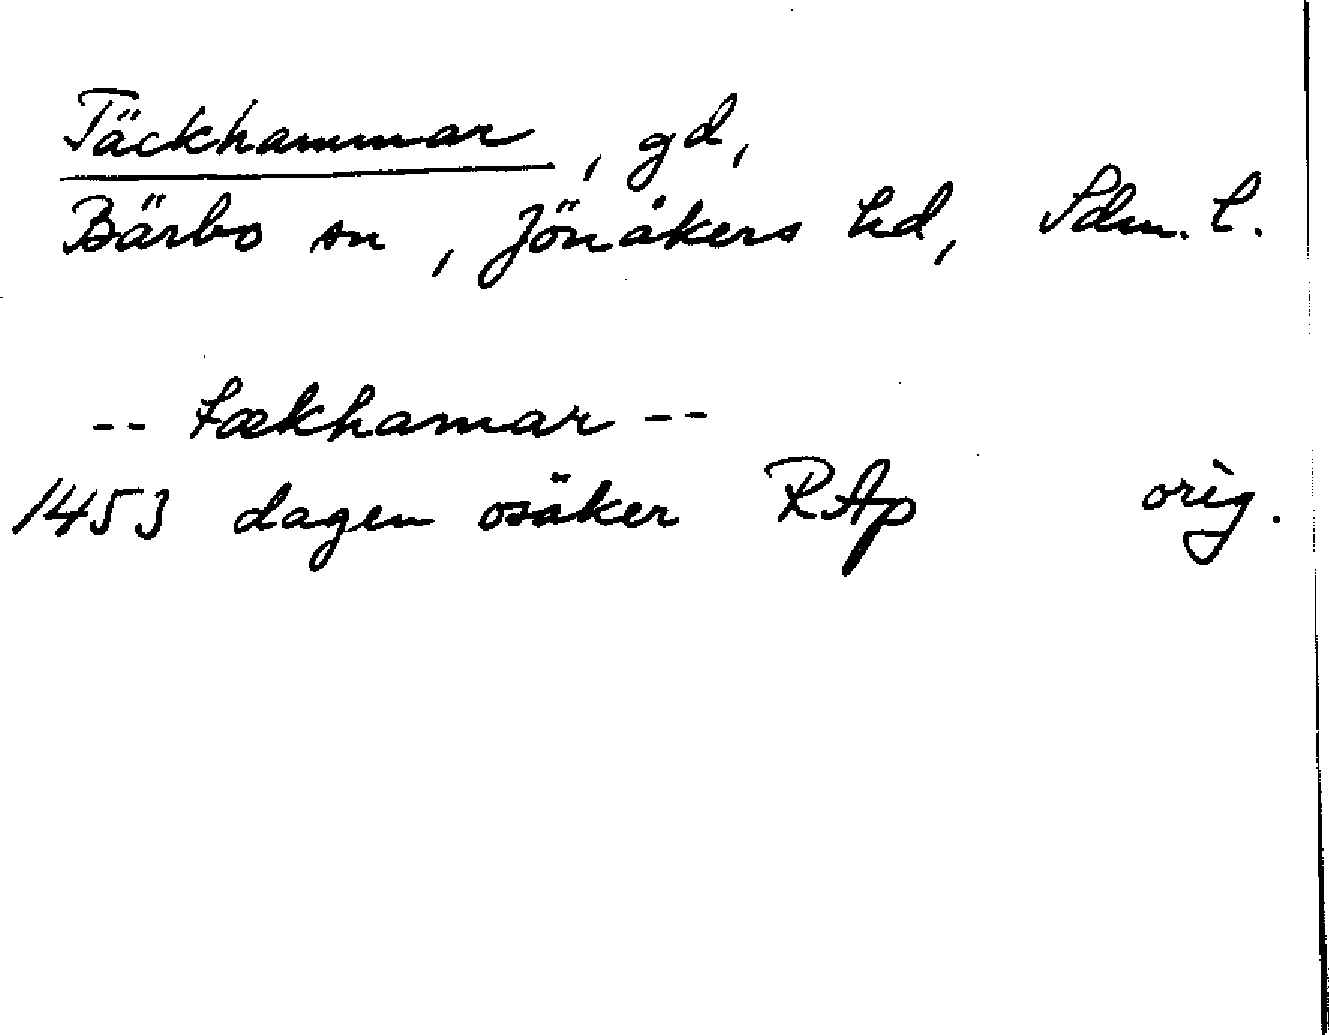 Täckhammar, gd,
Bärbo sn, Jönåkers hd, Sdm. l.
-- tækhamar --
1453 dagen osäker RAp orig.